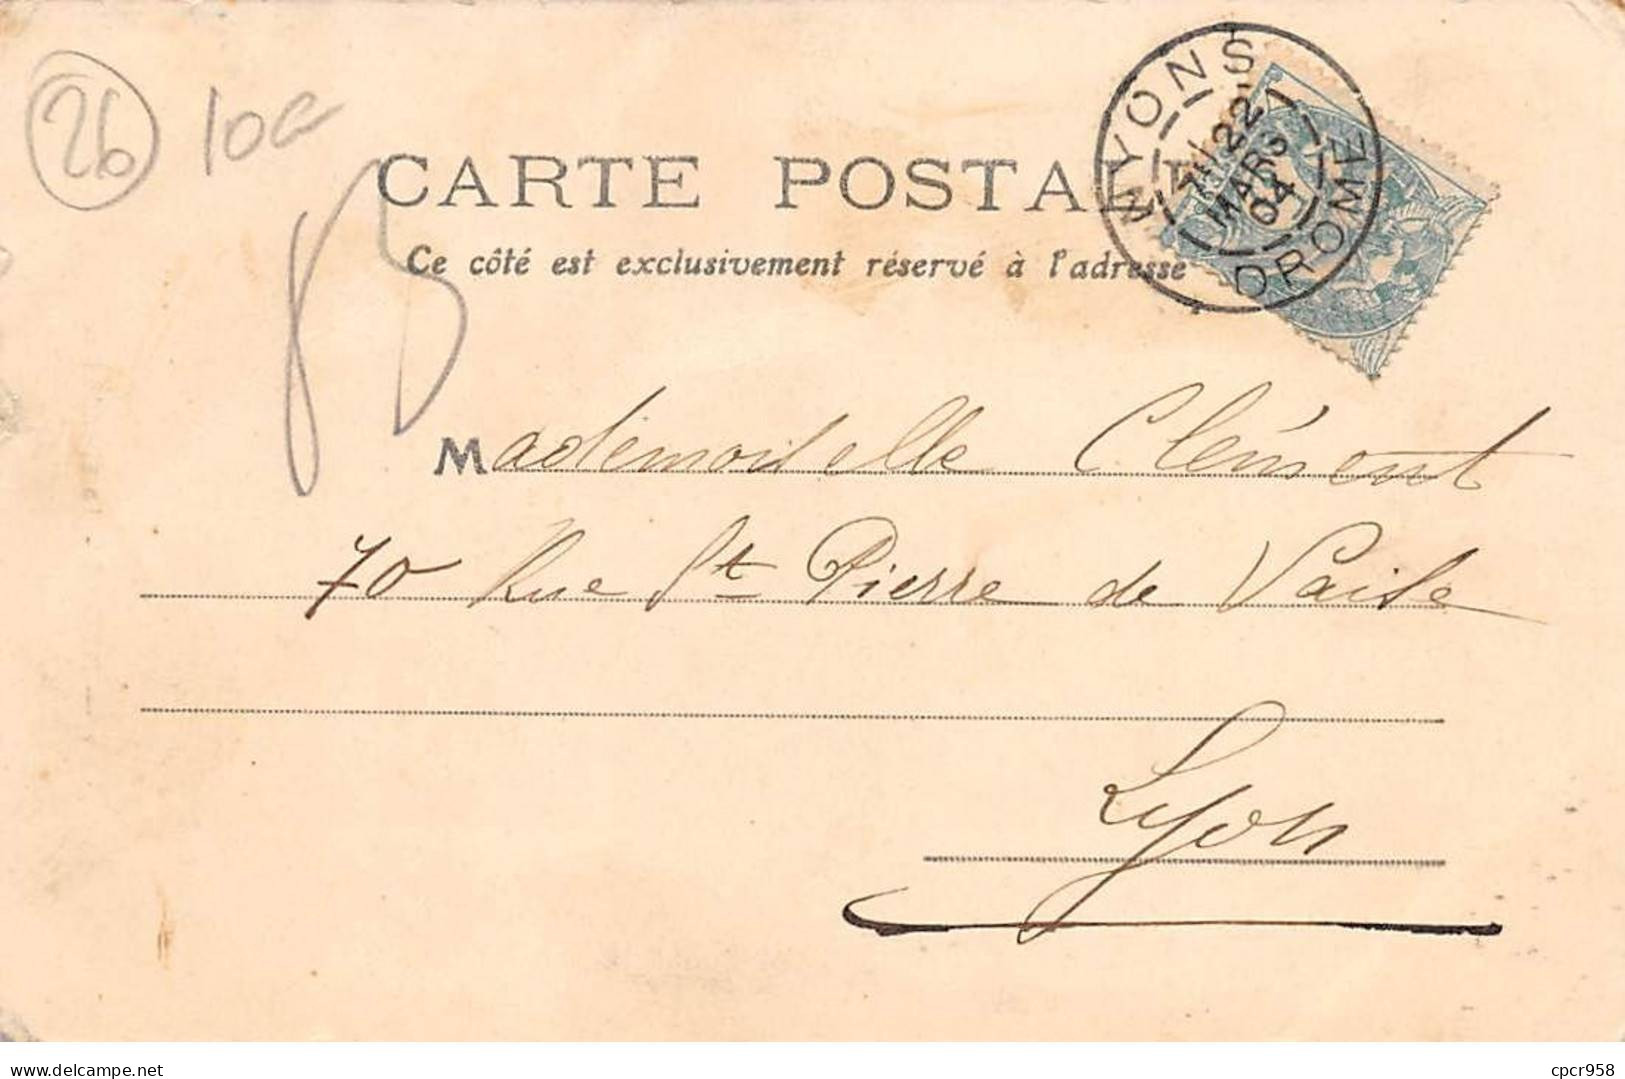 26
10
CARTE POSTALE
Ce côté est exclusivement réservé à l'adresse
NYONS
22
MARS
04
DROME
Mademoiselle Clément
70 Rue St Pierre de Vaise
Lyon
cpcr958